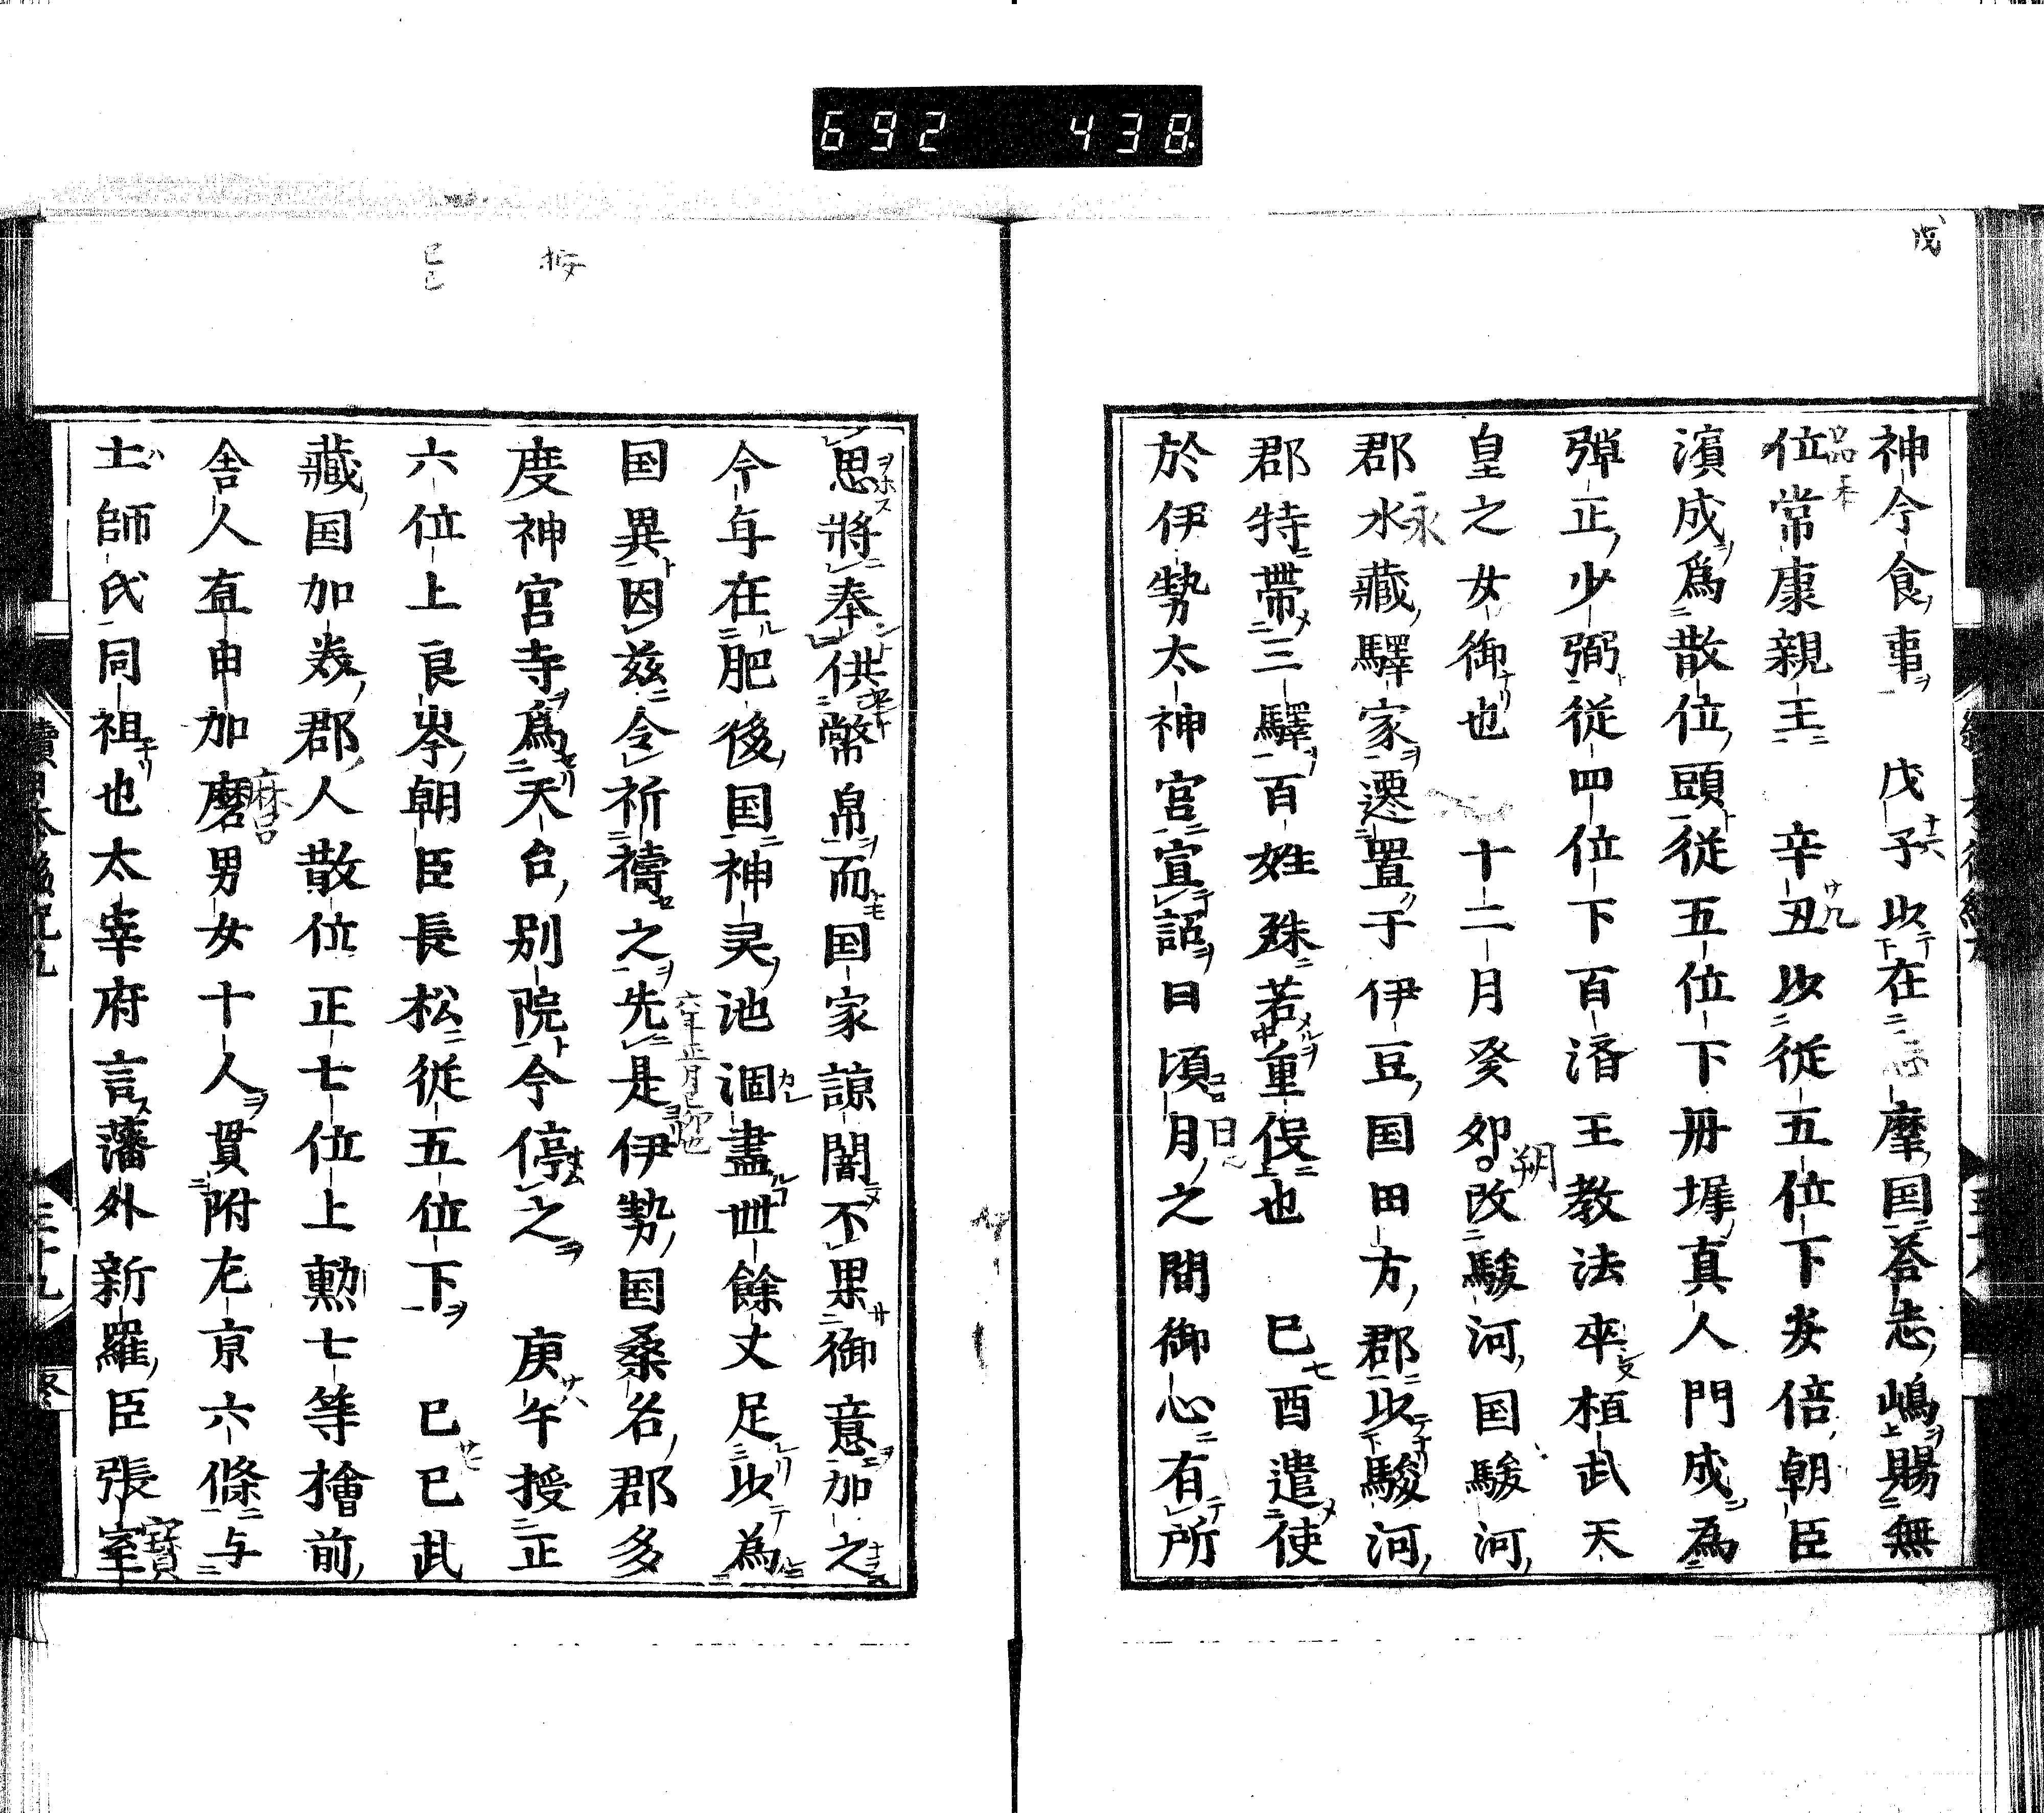 692 438
神今食事 戊子以在志摩国荅志嶋賜無
位常康親王 辛丑以從五位下安倍朝臣
濱成爲散位頭從五位下册墀真人門成為
弾正少弼従四位下百済王教法卒桓武天
皇之女御也 十二月癸卯改駿河国駿河
郡水藏驛家遷置于伊豆国田方郡以駿河
郡特帶三驛百姓殊若重役也 已酉遣使
於伊勢太神宮宣詔曰頃月之間御心有所
思將奉供幣帛而国家諒闇不果御意加之
今年在肥後国神灵池涸盡卌餘丈足以為
国異因兹令祈禱之先是伊勢国桑名郡多
度神宮寺爲天台別院今停之 庚午授正
六位上良岑朝臣長松從五位下 已巳武
藏国加美郡人散位正七位上勲七等檜前
舎人直由加磨男女十人貫附左京六條与
土師氏同祖也太宰府言藩外新羅臣張室
品 永 朔 日 麻呂 寳
六年正月己卯也
十六 廿九 七 廿八 廿七
巳己